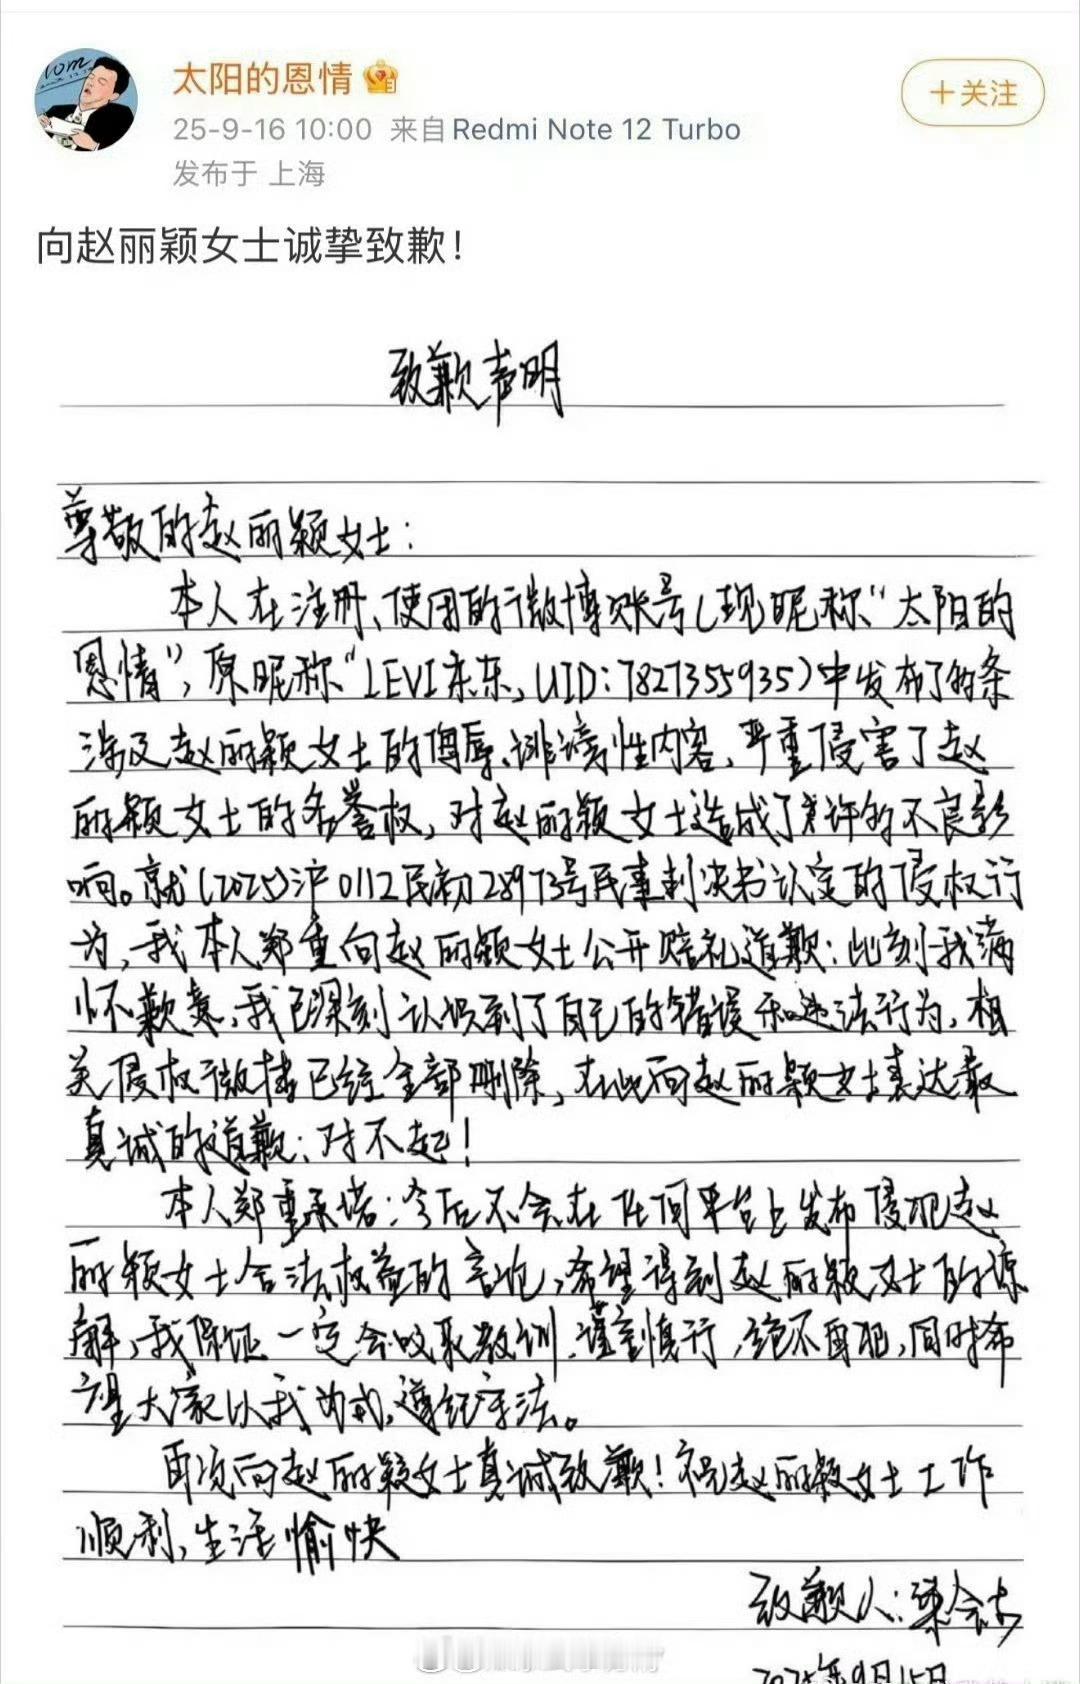 太阳的恩情
+关注
25-9-16 10:00 来自 Redmi Note 12 Turbo
发布于 上海
向赵丽颖女士诚挚致歉！
致歉声明
尊敬的赵丽颖女士：
本人在注册、使用的微博账号（现昵称“太阳的
恩情”，原昵称“LEVI东东，UID：7827355935）中发布了多条
涉及赵丽颖女士的侮辱、诽谤性内容，严重侵害了赵
丽颖女士的名誉权，对赵丽颖女士造成了许的不良影
响。就（2025）沪0112民初28973号民事判决书认定的侵权行
为，我本人郑重向赵丽颖女士公开赔礼道歉：此刻我满
怀歉意，我已深刻认识到了自己的错误和违法行为，相
关侵权微博已经全部删除，在此向赵丽颖女士表达最
真诚的道歉：对不起！
本人郑重承诺：今后不会在任何平台上发布侵犯赵
丽颖女士合法权益的言论，希望得到赵丽颖女士的谅
解，我保证一定会吸取教训、谨言慎行，绝不再犯，同时希
望大家以我为戒，遵纪守法。
再次向赵丽颖女士真诚致歉！祝赵丽颖女士工作
顺利，生活愉快
致歉人：梁会
2025年9月15日